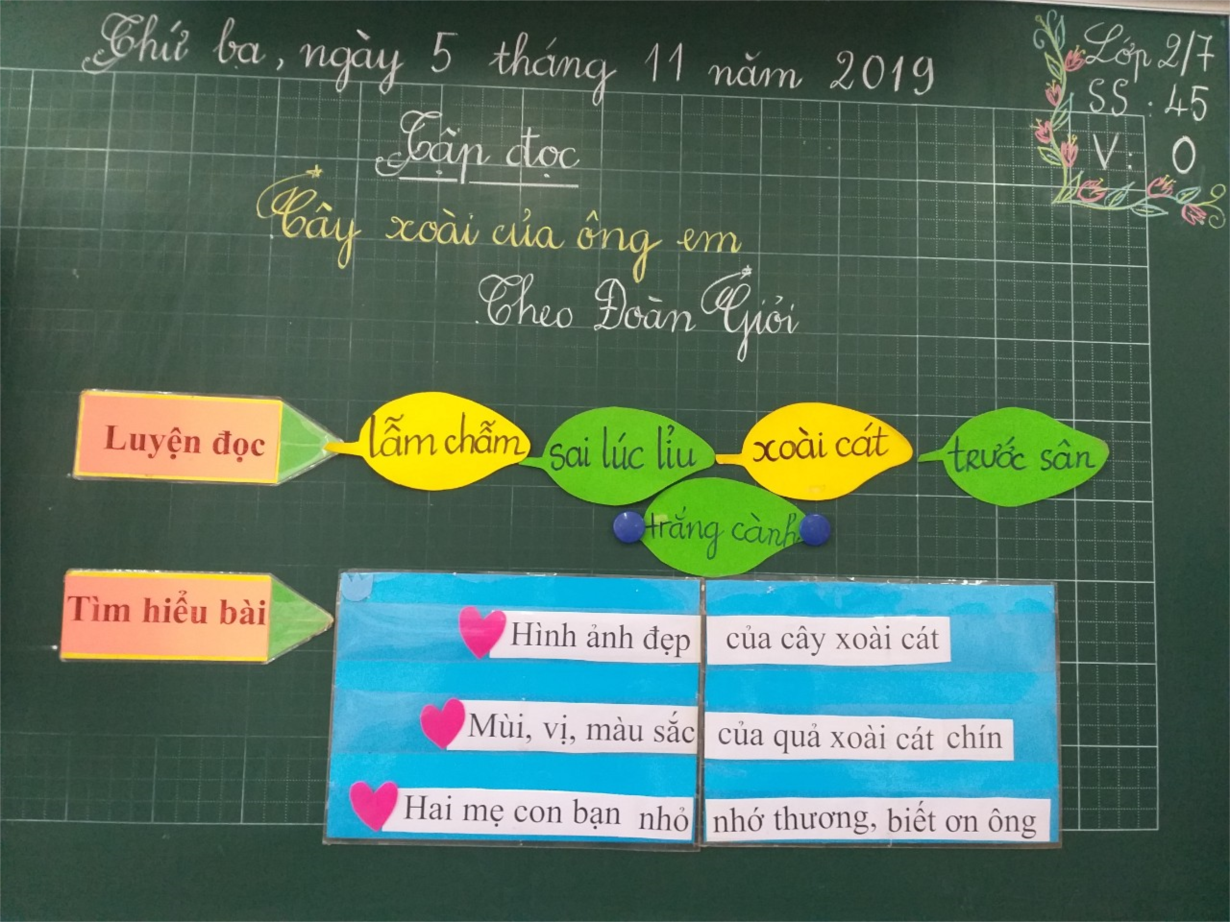 Thứ ba, ngày 5 tháng 11 năm 2019
Lớp 2/7
SS : 45
V : 0
Tập đọc
Cây xoài của ông em
Theo Đoàn Giỏi
Luyện đọc
lẫm chẫm
sai lúc lỉu
xoài cát
trước sân
trắng cành
Tìm hiểu bài
Hình ảnh đẹp của cây xoài cát
Mùi, vị, màu sắc của quả xoài cát chín
Hai mẹ con bạn nhỏ nhớ thương, biết ơn ông